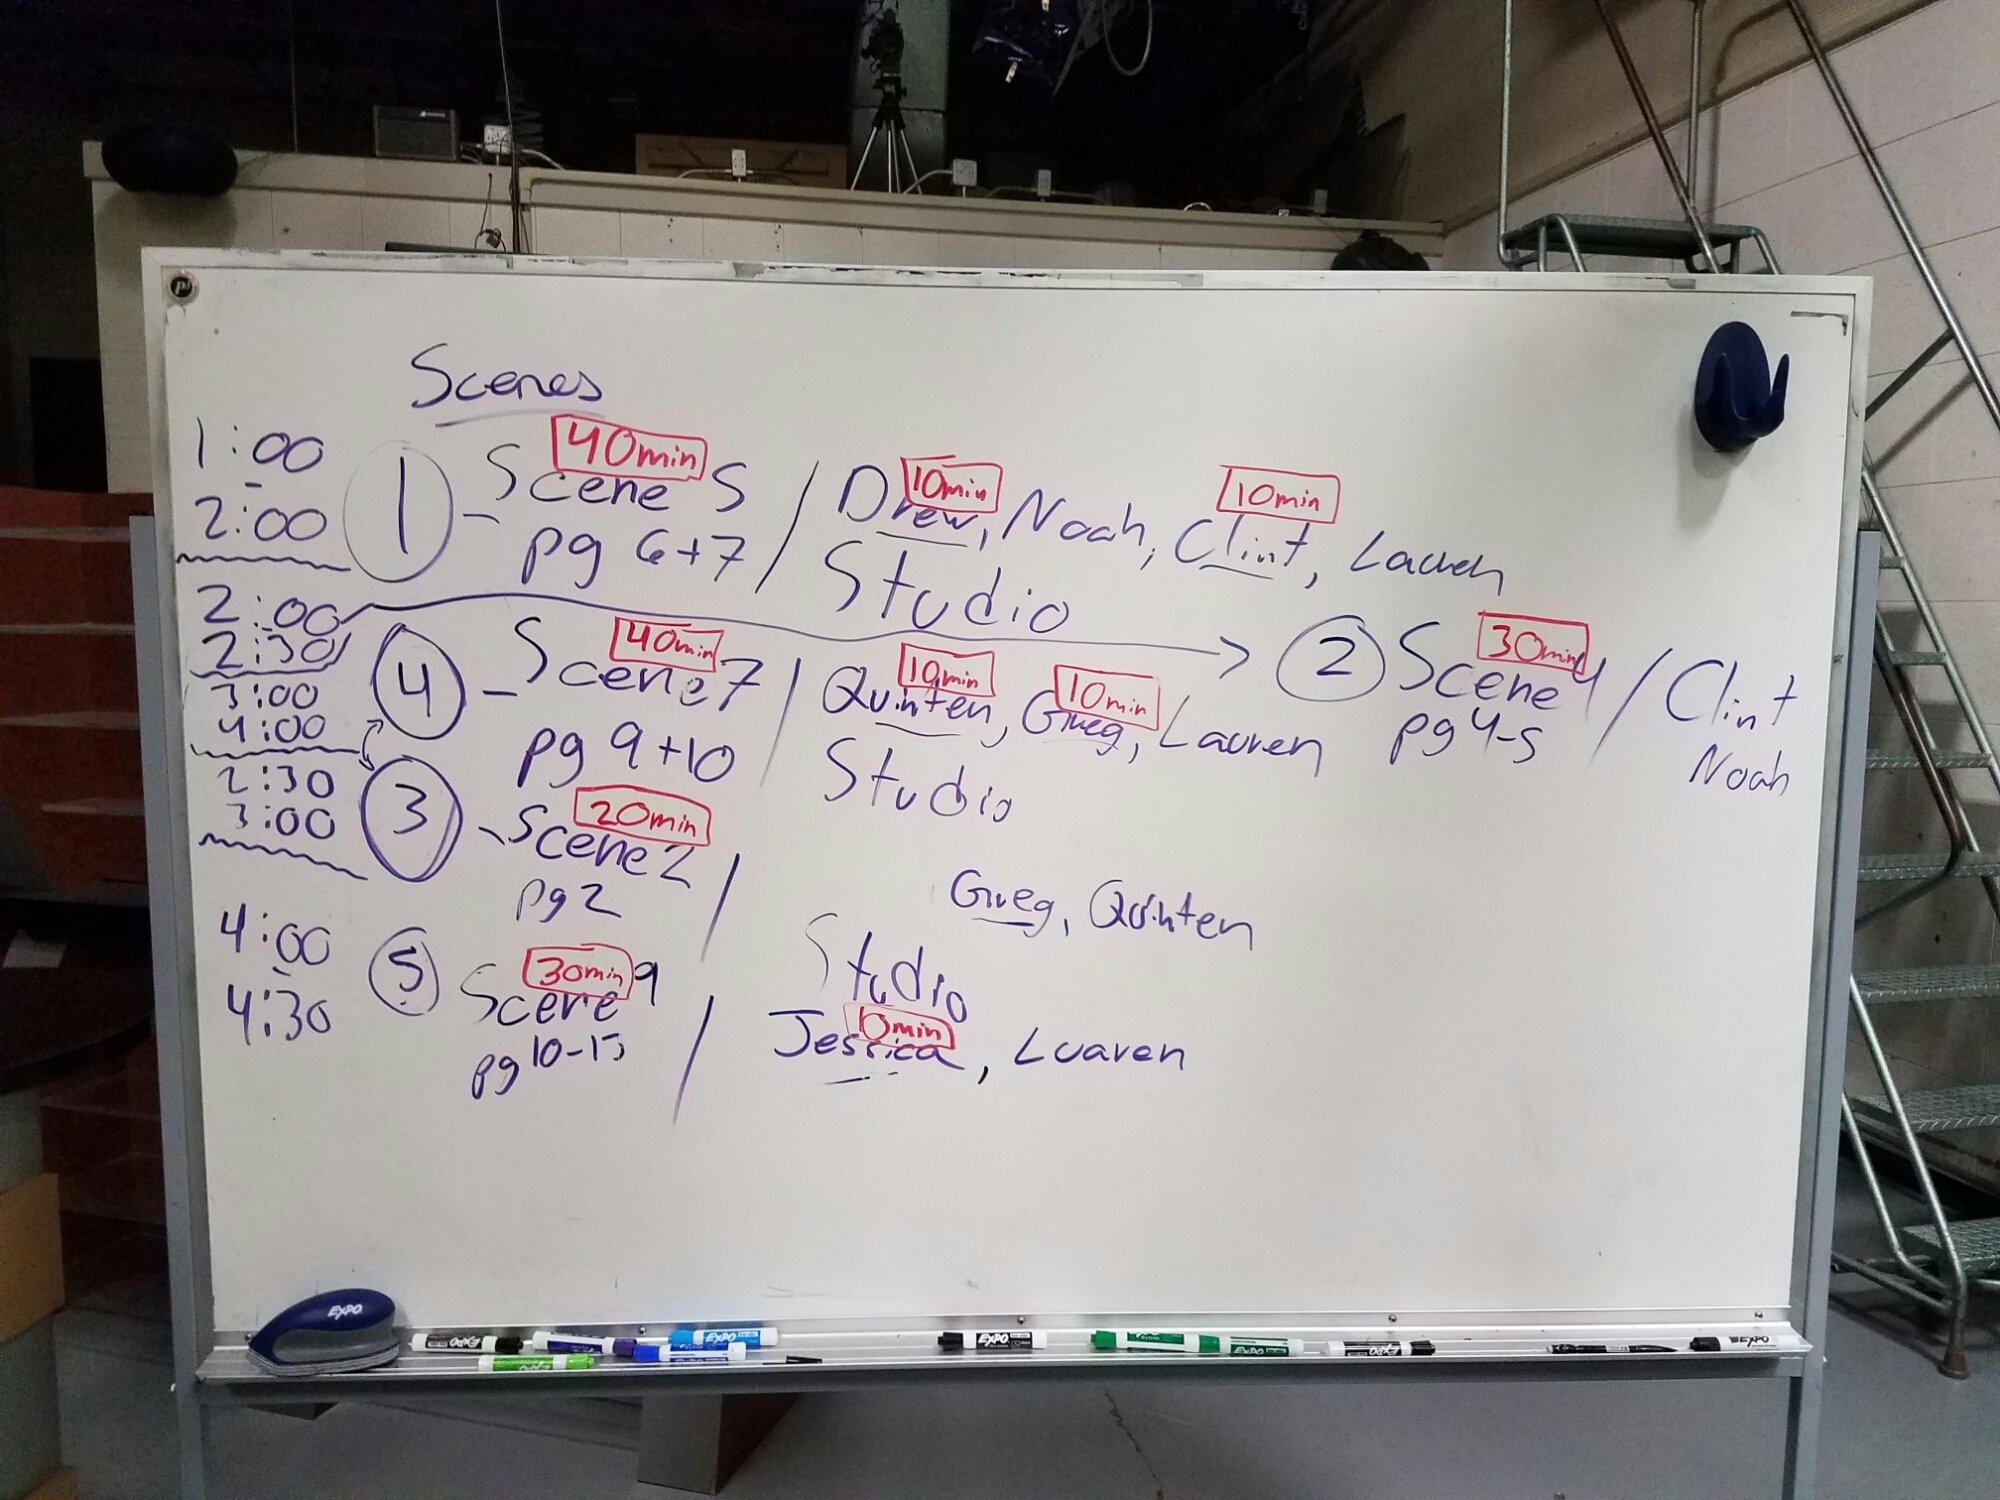 Scenes
1:00 - 2:00
1 - Scene 5 40min / Drew 10min, Noah, Clint 10min, Lauren
pg 6+7 Studio
2:00 2:30
2 Scene 4 30min / Clint
pg 4-5 Noah
3:00 4:00
4 - Scene 7 40min / Quinten 10min, Greg 10min, Lauren
pg 9+10 Studio
2:30 3:00
3 - Scene 2 20min / Greg, Quinten
pg 2 Studio
4:00 - 4:30
5 Scene 9 30min / Jessica 10min, Luaren
pg 10-15
EXPO
EXPO
EXPO
EXPO
EXPO
EXPO
EXPO